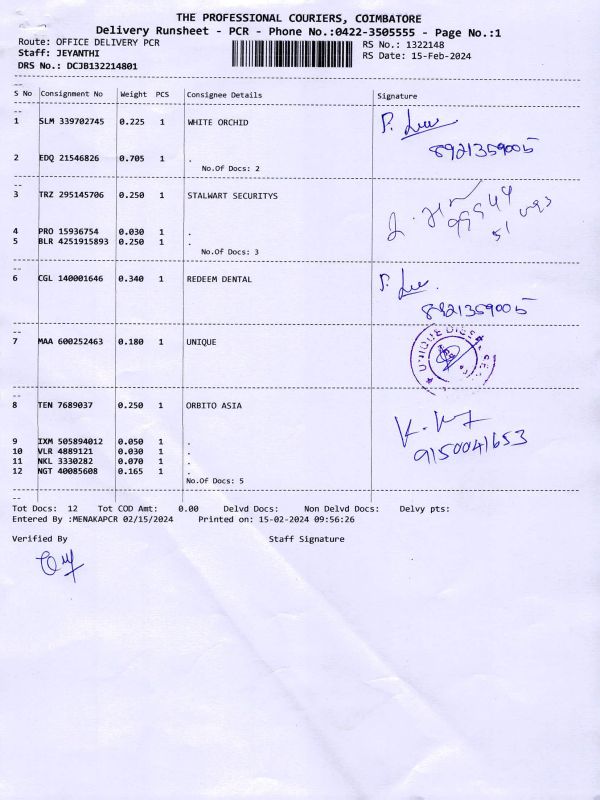 THE PROFESSIONAL COURIERS, COIMBATORE
Delivery Runsheet - PCR - Phone No.:0422-3505555 - Page No.:1
Route: OFFICE DELIVERY PCR RS No.: 1322148
Staff: JEYANTHI RS Date: 15-Feb-2024
DRS No.: DCJB132214801
S No Consignment No Weight PCS Consignee Details Signature
1 SLM 339702745 0.225 1 WHITE ORCHID
8921359005
2 EDQ 21546826 0.705 1 .
No.Of Docs: 2
3 TRZ 295145706 0.250 1 STALWART SECURITYS
4 PRO 15936754 0.030 1 .
5 BLR 4251915893 0.250 1 .
No.Of Docs: 3
6 CGL 140001646 0.340 1 REDEEM DENTAL
8921359005
7 MAA 600252463 0.180 1 UNIQUE
UNIQUE
8 TEN 7689037 0.250 1 ORBITO ASIA
9150041653
9 IXM 505894012 0.050 1 .
10 VLR 4889121 0.030 1 .
11 NKL 3330282 0.070 1 .
12 NGT 40085608 0.165 1 .
No.Of Docs: 5
Tot Docs: 12 Tot COD Amt: 0.00 Delvd Docs: Non Delvd Docs: Delvy pts:
Entered By :MENAKAPCR 02/15/2024 Printed on: 15-02-2024 09:56:26
Verified By Staff Signature